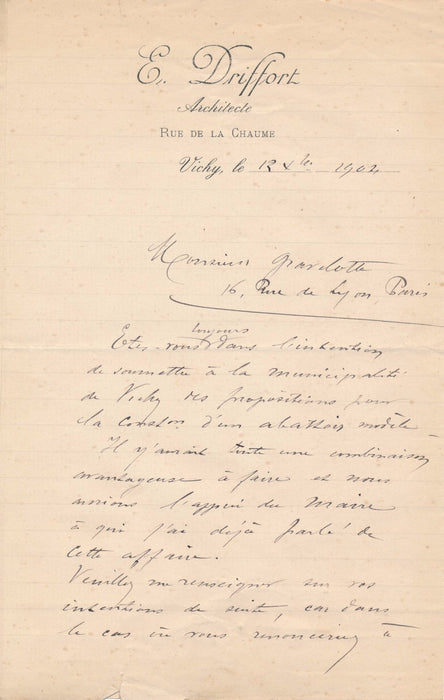 E. Driffort
Architecte
RUE DE LA CHAUME
Vichy, le 12 Xbre 1902
Monsieur Gravelotte
16, Rue de Lyon, Paris
toujours
Etes-vous dans l'intention
de soumettre à la municipalité
de Vichy des propositions pour
la constron d'un abattoir modèle
Il y aurait toute une combinaison
avantageuse à faire et nous
aurions l'appui du Maire
à qui j'ai déjà parlé de
cette affaire.
Veuillez me renseigner sur vos
intentions de suite, car dans
le cas où vous renonceriez à